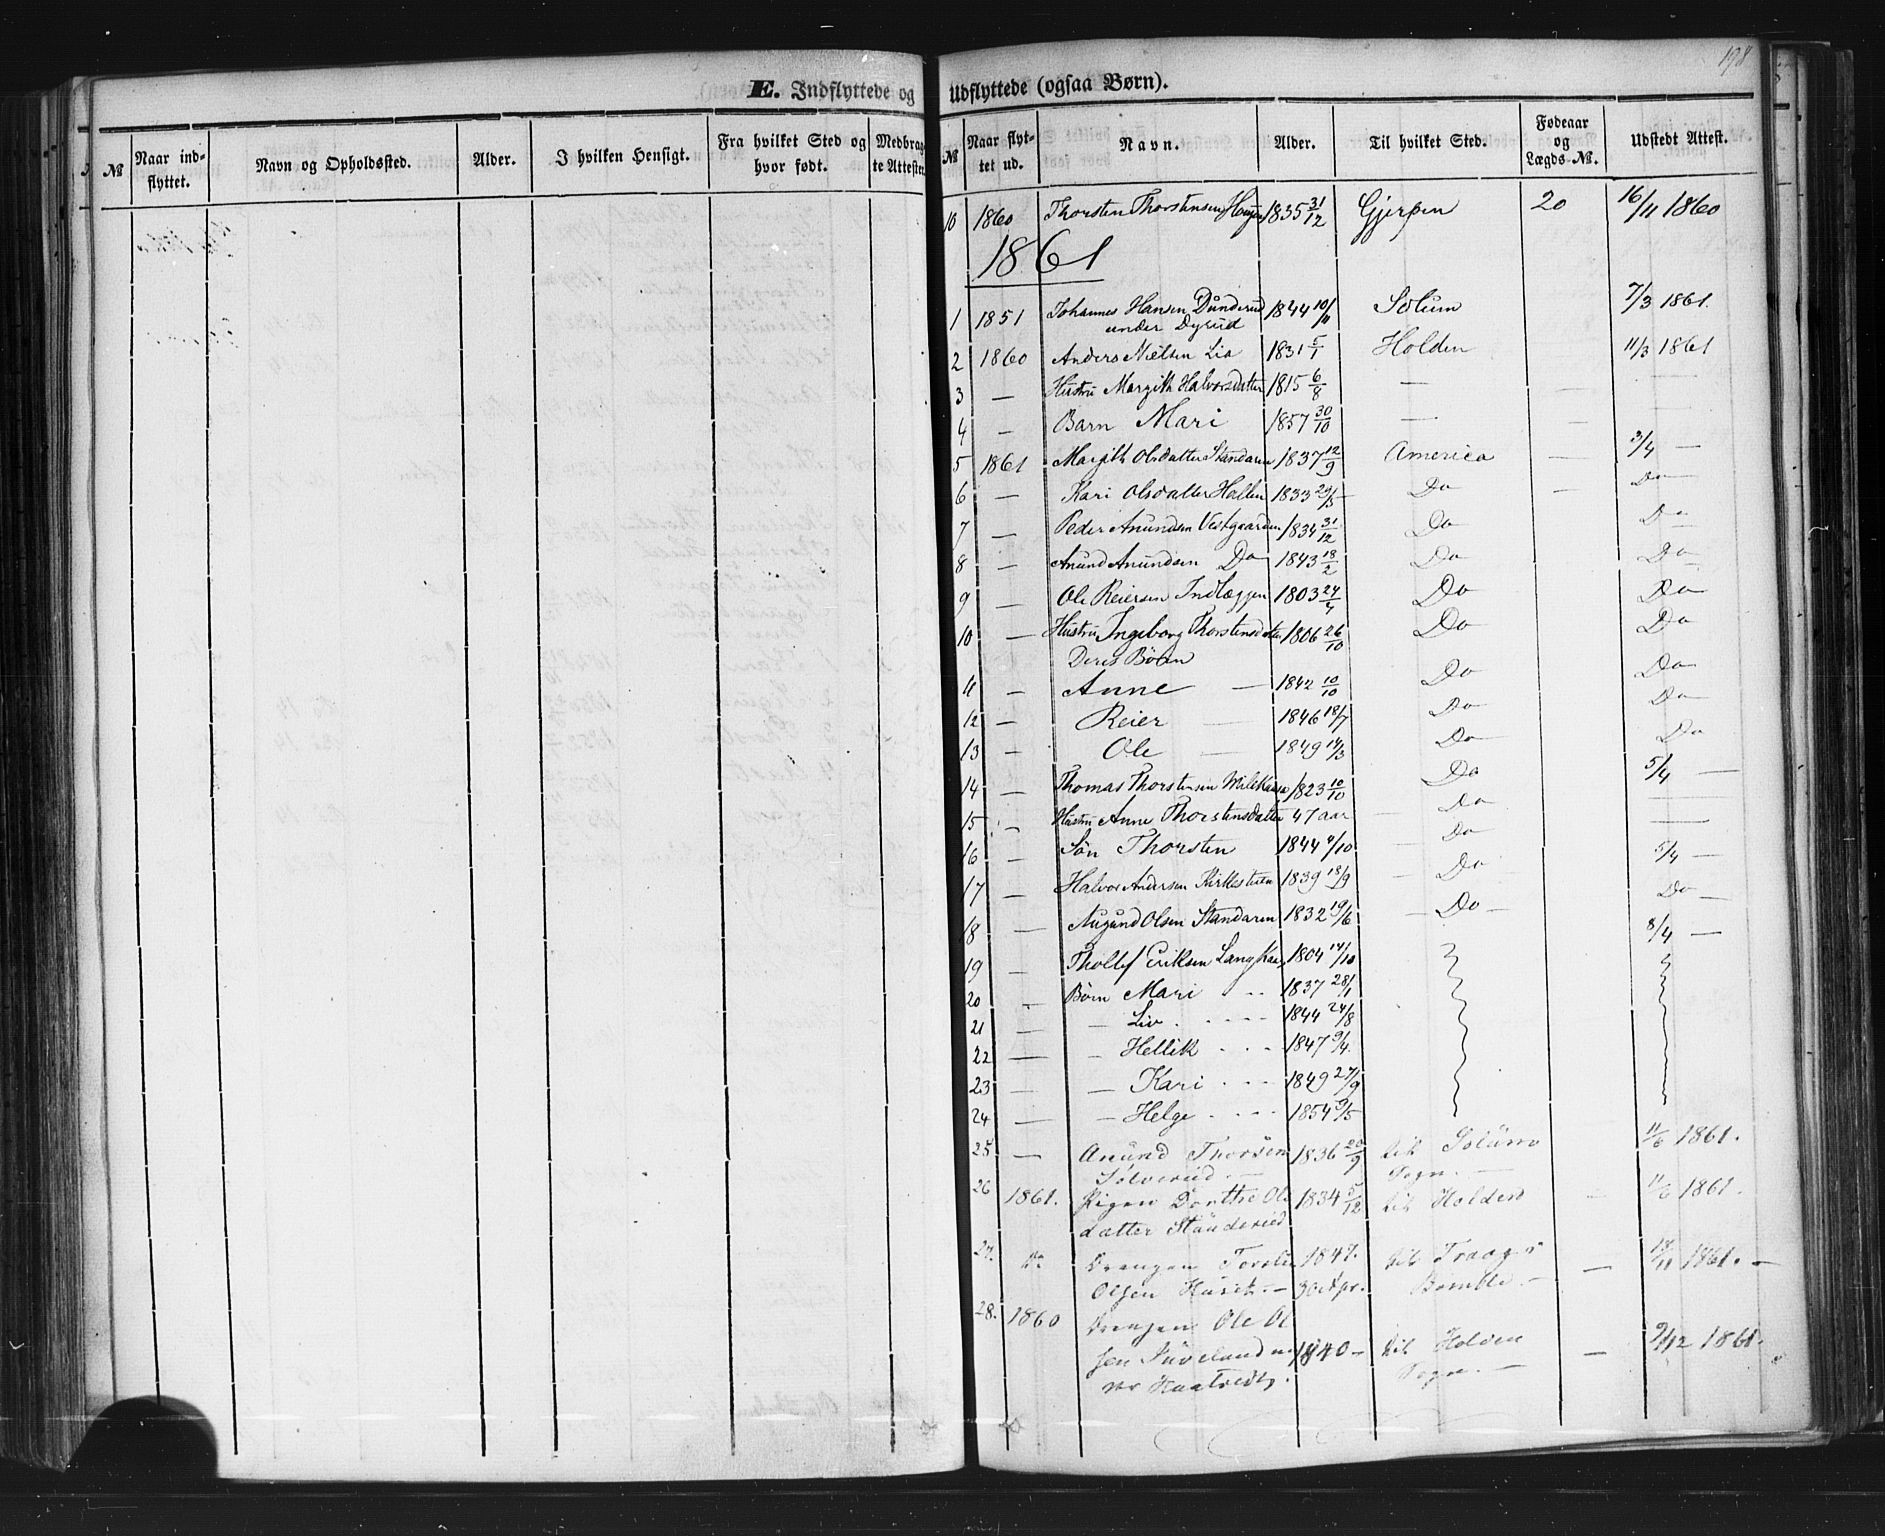 198
E. Indflyttede og Udflyttede (ogsaa Børn).
№ | Naar ind-flyttet. | Navn og Opholdssted. | Alder. | I hvilken Hensigt. | Fra hvilket Sted og hvor født. | Medbragte Attester.
№ | Naar flyttet ud. | Navn. | Alder. | Til hvilket Sted. | Fødeaar og Lægds-№. | Udstedt Attest.
10 1860 Thorsten Thorstensen 1835 31/12 Gjerpen 20 16/11 1860
1861
1 1851 Johannes Hansen Dunderud 1844 10/11 Solum 7/3 1861.
under Dyrud
2 1860 Anders Nielsen Lia 1831 5/1 Holden 11/3 1861
3 — Hustru Margith Halvorsdatter 1815 6/8 —
4 — Barn Mari 1857 30/10 — —
5 1861 Margith Olsdatter Standaren 1837 12/9 America — 3/4 —
6 — Kari Olsdatter Hallen 1833 29/5 Do — Do
7 — Peder Anundsen Vestgaarden 1834 31/12 Do Do
8 — Anund Anundsen Do 1843 18/2 Do Do
9 — Ole Reiersen Indlæggen 1803 24/4 Do Do
10 — Hustru Ingeborg Thorstensdatter 1806 26/10 Do Do
Deres Börn
11 — Anne — 1842 10/10 Do Do
12 — Reier — 1846 18/7 Do Do
13 — Ole — 1849 14/3 Do Do
14 — Thomas Thorstensen 1823 10/10 Do 5/4 —
15 — Hustru Anne Thorstensdatter 47 aar — Do —
16 — Sön Thorsten 1844 /10 Do 5/4 —
17 — Halvor Andersen Kirkestuen 1839 18/9 — Do Do —
18 — Augund Olsen Standaren 1832 19/6 — Do — 8/4 —
19 — Thollef Eriksen 1804 14/10
20 — Börn Mari 1837 28/1
21 — — Liv 1844 24/8
22 — — Hellik 1847 9/4.
23 — — Kari 1849 27/9
24 — — Helge 1854 9/5
25 — Anund Thorsen 1836 20/9 til Solum 11/6 1861.
Sølverud — Sogn. —
26 1861. Pigen Dorthe Ols 1834 5/12 til Holden — 11/6 1861.
datter
27. Do Drengen 1847. til 18/11 1861. —
Olsen Huset. — 30 Apr. Bamble. — —
28. 1860 Drengen Ole Ol
sen 1840 — til Holden — 9/12 1861.
Sogn. —